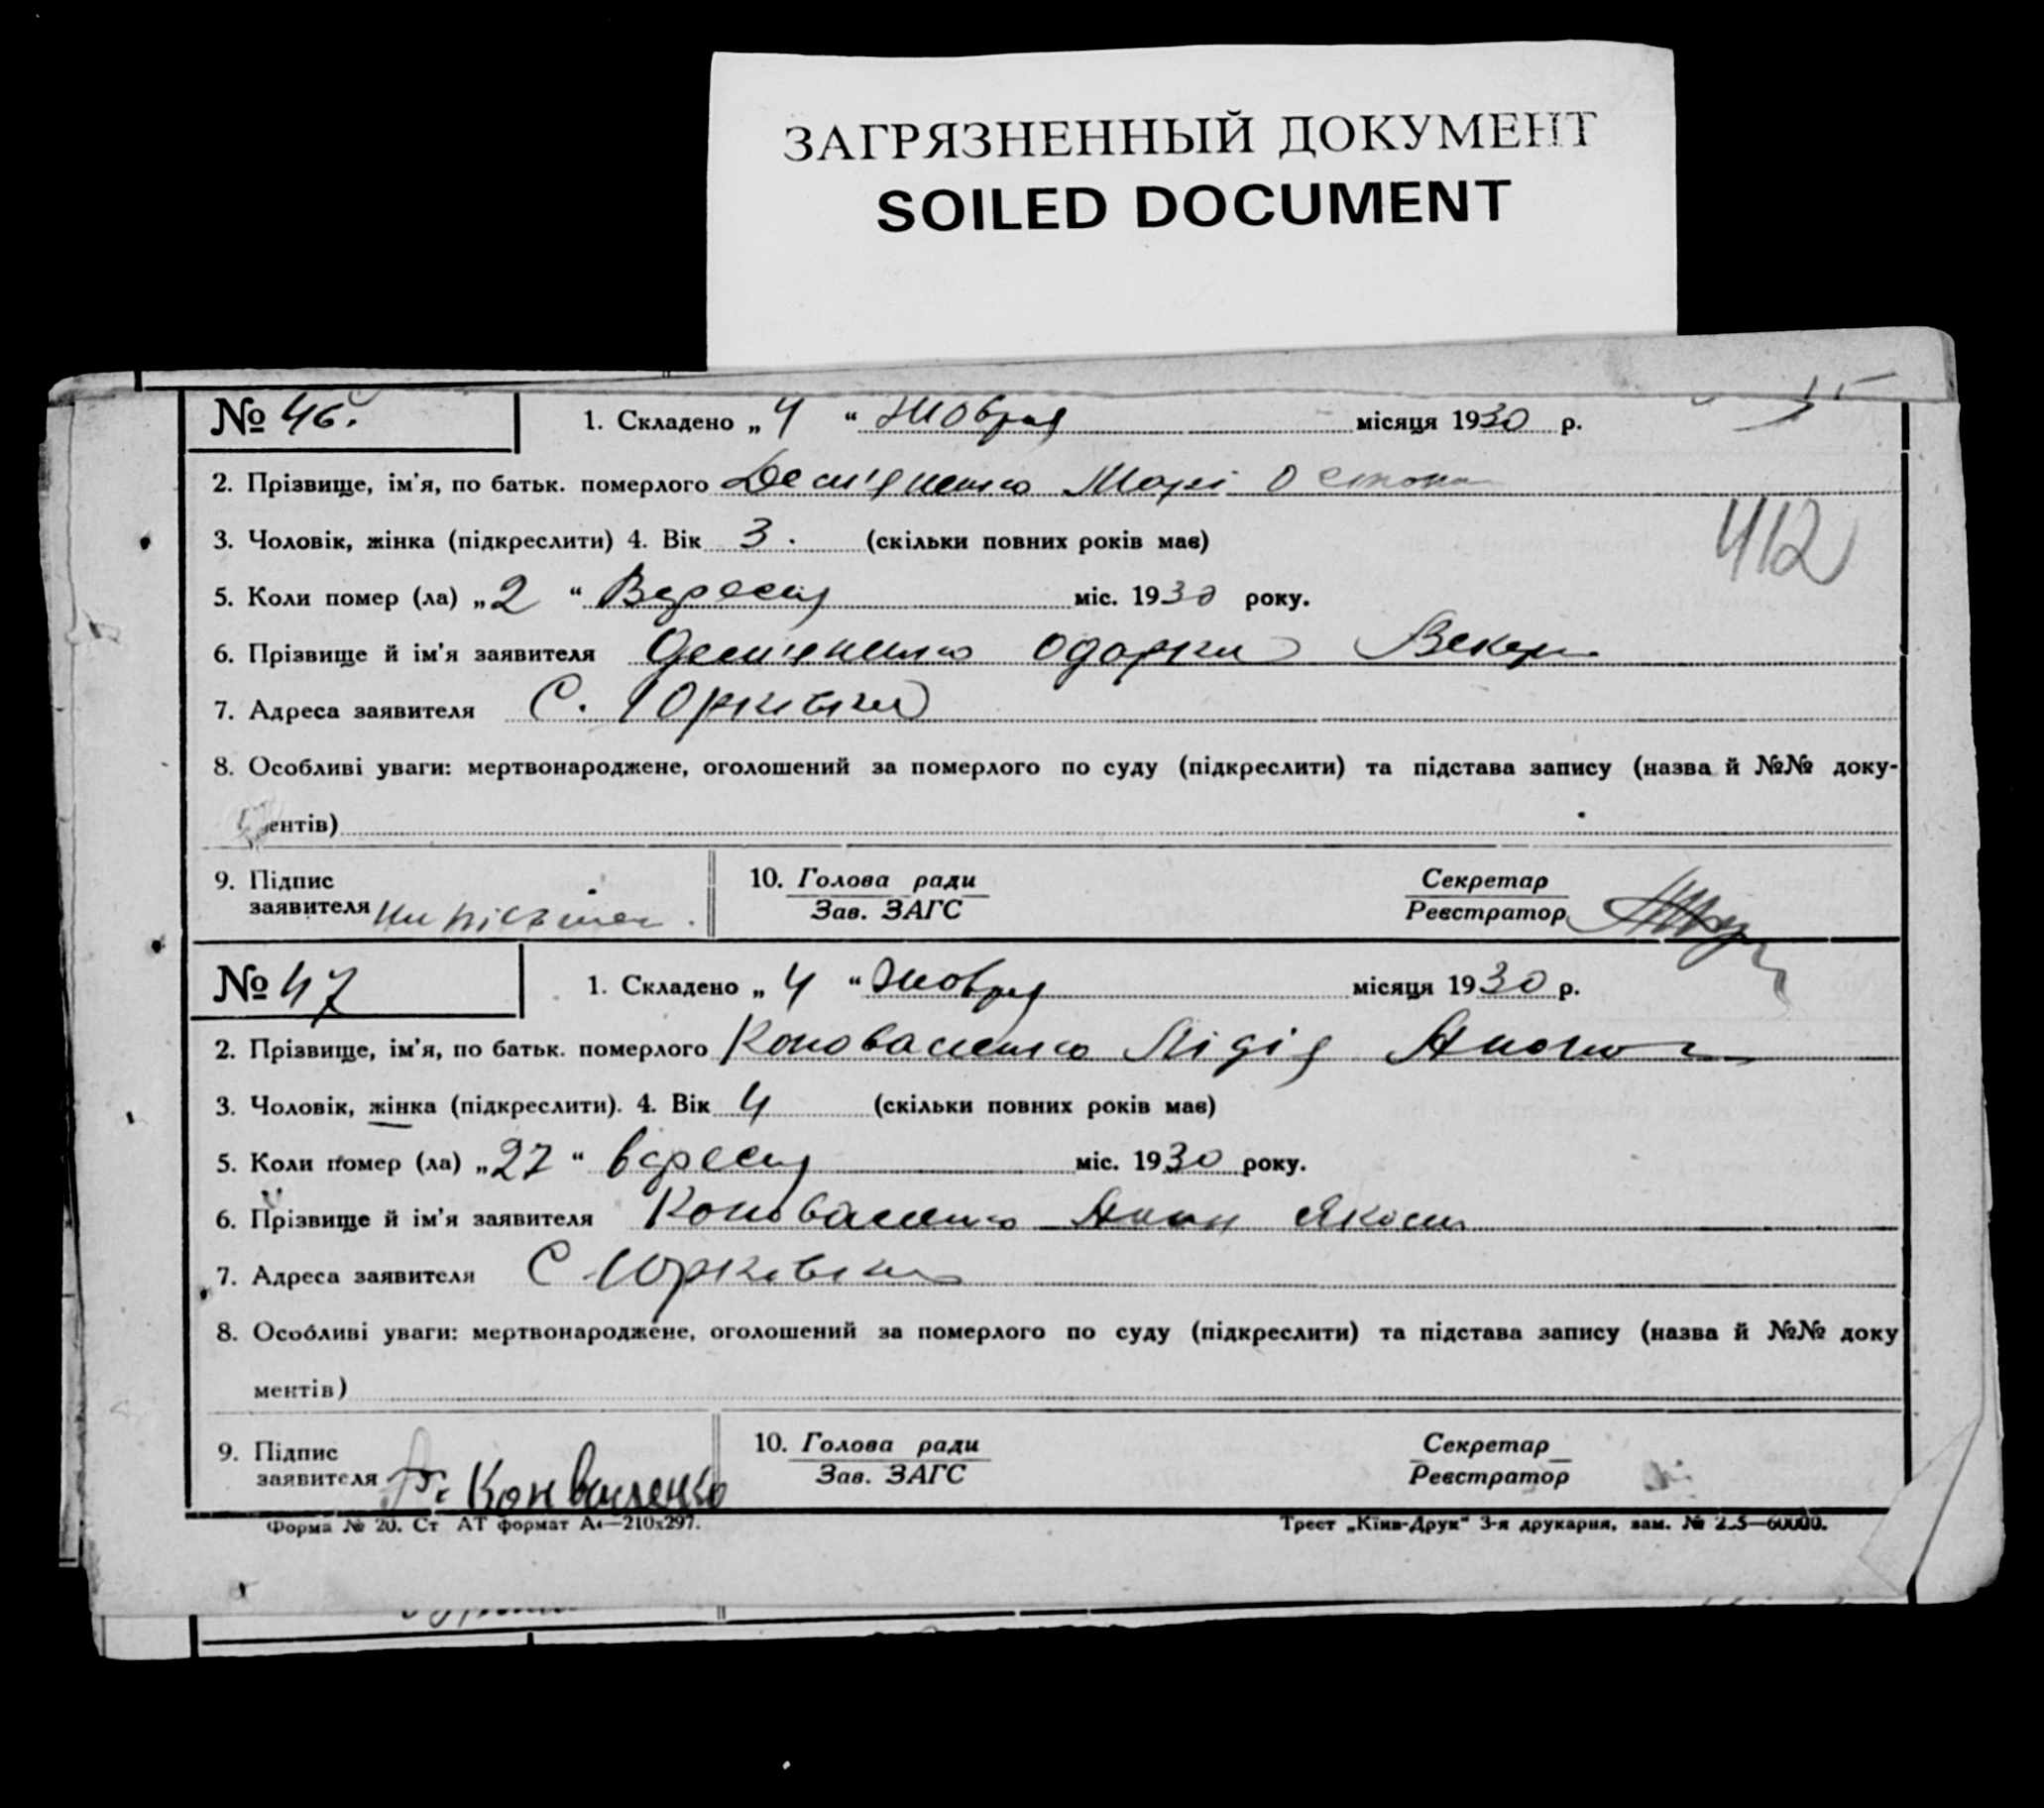 ЗАГРЯЗНЕННЫЙ ДОКУМЕНТ
SOILED DOCUMENT
№ 46. 1. Складено „ 4 “ Жовтня місяця 1930 р.
2. Прізвище, ім'я, по батьк. померлого Дем'яненко
412
3. Чоловік, жінка (підкреслити) 4. Вік 3. (скільки повних років має)
5. Коли помер (ла) „2“ Вересня міс. 1930 року.
6. Прізвище й ім'я заявителя Дем'яненко Одарка
7. Адреса заявителя С. Юрківка
8. Особливі уваги: мертвонароджене, оголошений за померлого по суду (підкреслити) та підстава запису (назва й №№ доку-
ентів)
9. Підпис
заявителя
10. Голова ради
Зав. ЗАГС
Секретар
Реєстратор
№ 47 1. Складено „ 4 “ Жовтня місяця 1930 р.
2. Прізвище, ім'я, по батьк. померлого Коноваленко Лідія
3. Чоловік, жінка (підкреслити). 4. Вік 4 (скільки повних років має)
5. Коли помер (ла) „27“ вересня міс. 1930 року.
6. Прізвище й ім'я заявителя Коноваленко
7. Адреса заявителя С Юрківка
8. Особливі уваги: мертвонароджене, оголошений за померлого по суду (підкреслити) та підстава запису (назва й №№ доку
ментів)
9. Підпис
заявителя
10. Голова ради
Зав. ЗАГС
Секретар
Реєстратор
Форма № 20. Ст АТ формат А4—210x297.
Трест „Київ-Друк“ 3-я друкарня, зам. №